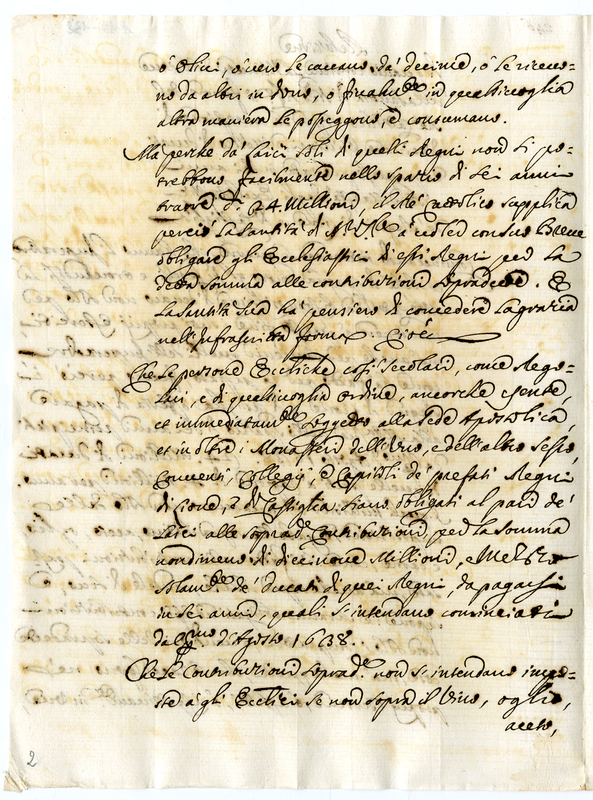 ò Olivi, ò vero le cavano da' decime, ò le ricevo=
no da altri in dono, ò finalm.te in qualsivoglia
altra maniera le posseggono, e consumano.
Mà perche da' laici soli di quelli Regni non si po=
trebbono facilmente nello spatio di sei anni
trarre di 24. Millioni, il Rè Cattolico supplica
perciò la Santità di N. à voler con suo breve
obligare gli Ecclesiastici di essi Regni per la
detta somma alle contributioni sopradette. Et
la Santità Sua hà pensiero di concedere la gratia
nell'infrascritta forma. Cioè
Che le persone Eccl.tiche così secolari, come Rego=
lari, e di qualsivoglia ordine, ancorche esente,
et immediatam.te soggetto alla Sede Apostolica,
et inoltre i Monasteri dell'uno, e dell'altro sesso,
Conventi, Collegij, e Capitoli de' prefati Regni
di Leone, e di Castiglia siano obligati al pari de'
laici alle soprad.e Contributioni, per la somma
nondimeno di diecinove Millioni, e mezzo
solam.te de' ducati di quei Regni, da pagarsi
in sei anni, quali s'intendano cominciati
da p.mo d'Agosto 1638.
Che le Contributioni soprad.e non s'intendano impo=
ste à gli Eccl.ci se non sopra il Vino, oglio,
aceto,
2